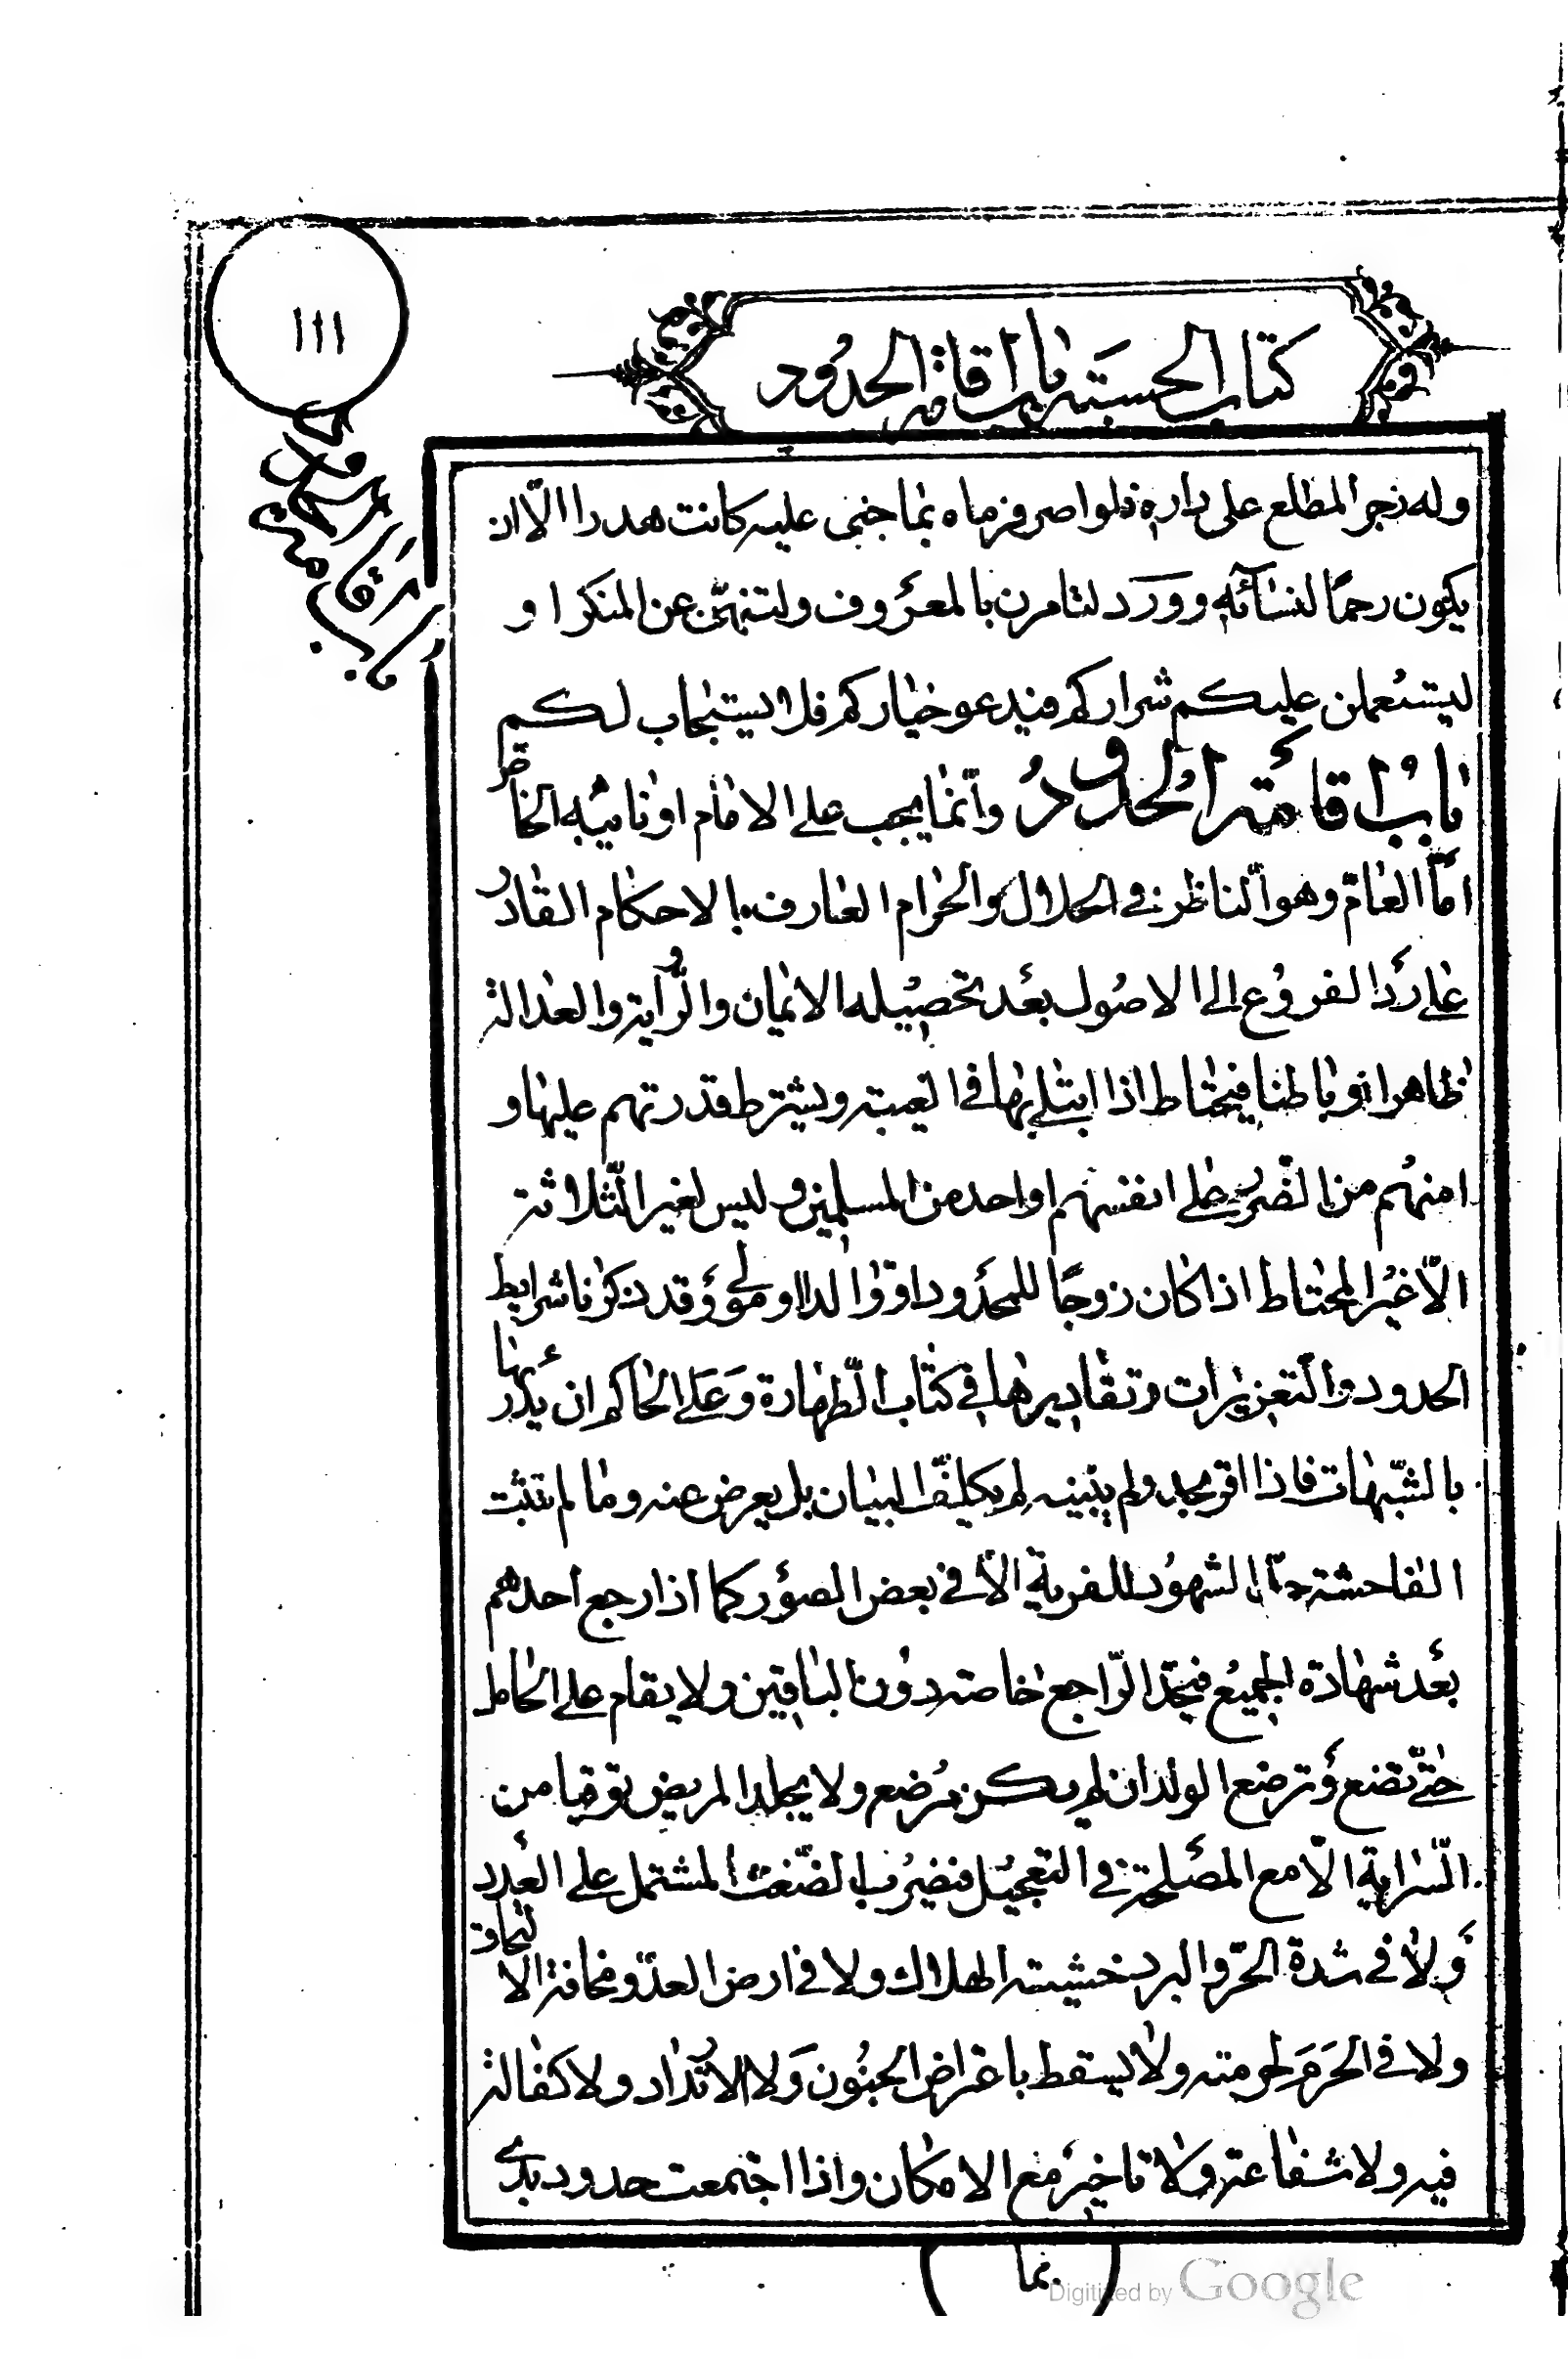 ١١١
كتاب الحسبة باب اقامة الحدود
باب اقامة
وله زجر المطلع على داره فلو اصر فرماه بما جنى عليه كانت هدرا الّا ان
يكون رحمًا لنسائه وورد لتامرن بالمعروف ولتنهنّ عن المنكر او
ليستعملن عليكم شراركم فيدعو خياركم فلا يستجاب لكم
باب اقامة الحدود وانّما يجب على الامام او نائبه الخاص
امّا العامّ وهو النّاظر في الحلال والحرام العارف بالاحكام القادر
على ردّ الفروع الى الاصول بعد تحصيله الايمان والدّراية والعدالة
ظاهرا وباطنا فيحتاط اذا ابتلى بها في الغيبة ويشترط قدرتهم عليها و
امنهم من الضّرر على انفسهم او احد من المسلمين وليس لغير الثّلاثة
الّا غير المحتاط اذا كان زوجًا للمحدود او والدا او مولى وقد ذكرنا شرايط
الحدود والتّعزيرات وتقاديرها في كتاب الطّهارة وعلى الحاكم ان يدرئها
بالشّبهات فاذا اقر بحد ولم يبيّنه لم يكلّف البيان بل يعرض عنه وما لم تثبت
الفاحشة حدّ الشهود للفرية الّا في بعض الصور كما اذا رجع احدهم
بعد شهادة الجميع فيحدّ الرّاجع خاصة دون الباقين ولا يقام على الحامل
حتّى تضع وترضع الولد ان لم يكن مرضع ولا يجلد المريض توقيا من
السّراية الّا مع المصلحة في التعجيل فيضرب بالضّغث المشتمل على العدد
ولا في شدة الحرّ والبرد خشية الهلاك ولا في ارض العدّو مخافة الالتحاق
ولا في الحرم لحرمته ولا يسقط باعتراض الجنون ولا الارتداد ولا كفالة
فيه ولا شفاعة ولا تاخير مع الامكان واذا اجتمعت حدود بدى
بما
Digitized by Google